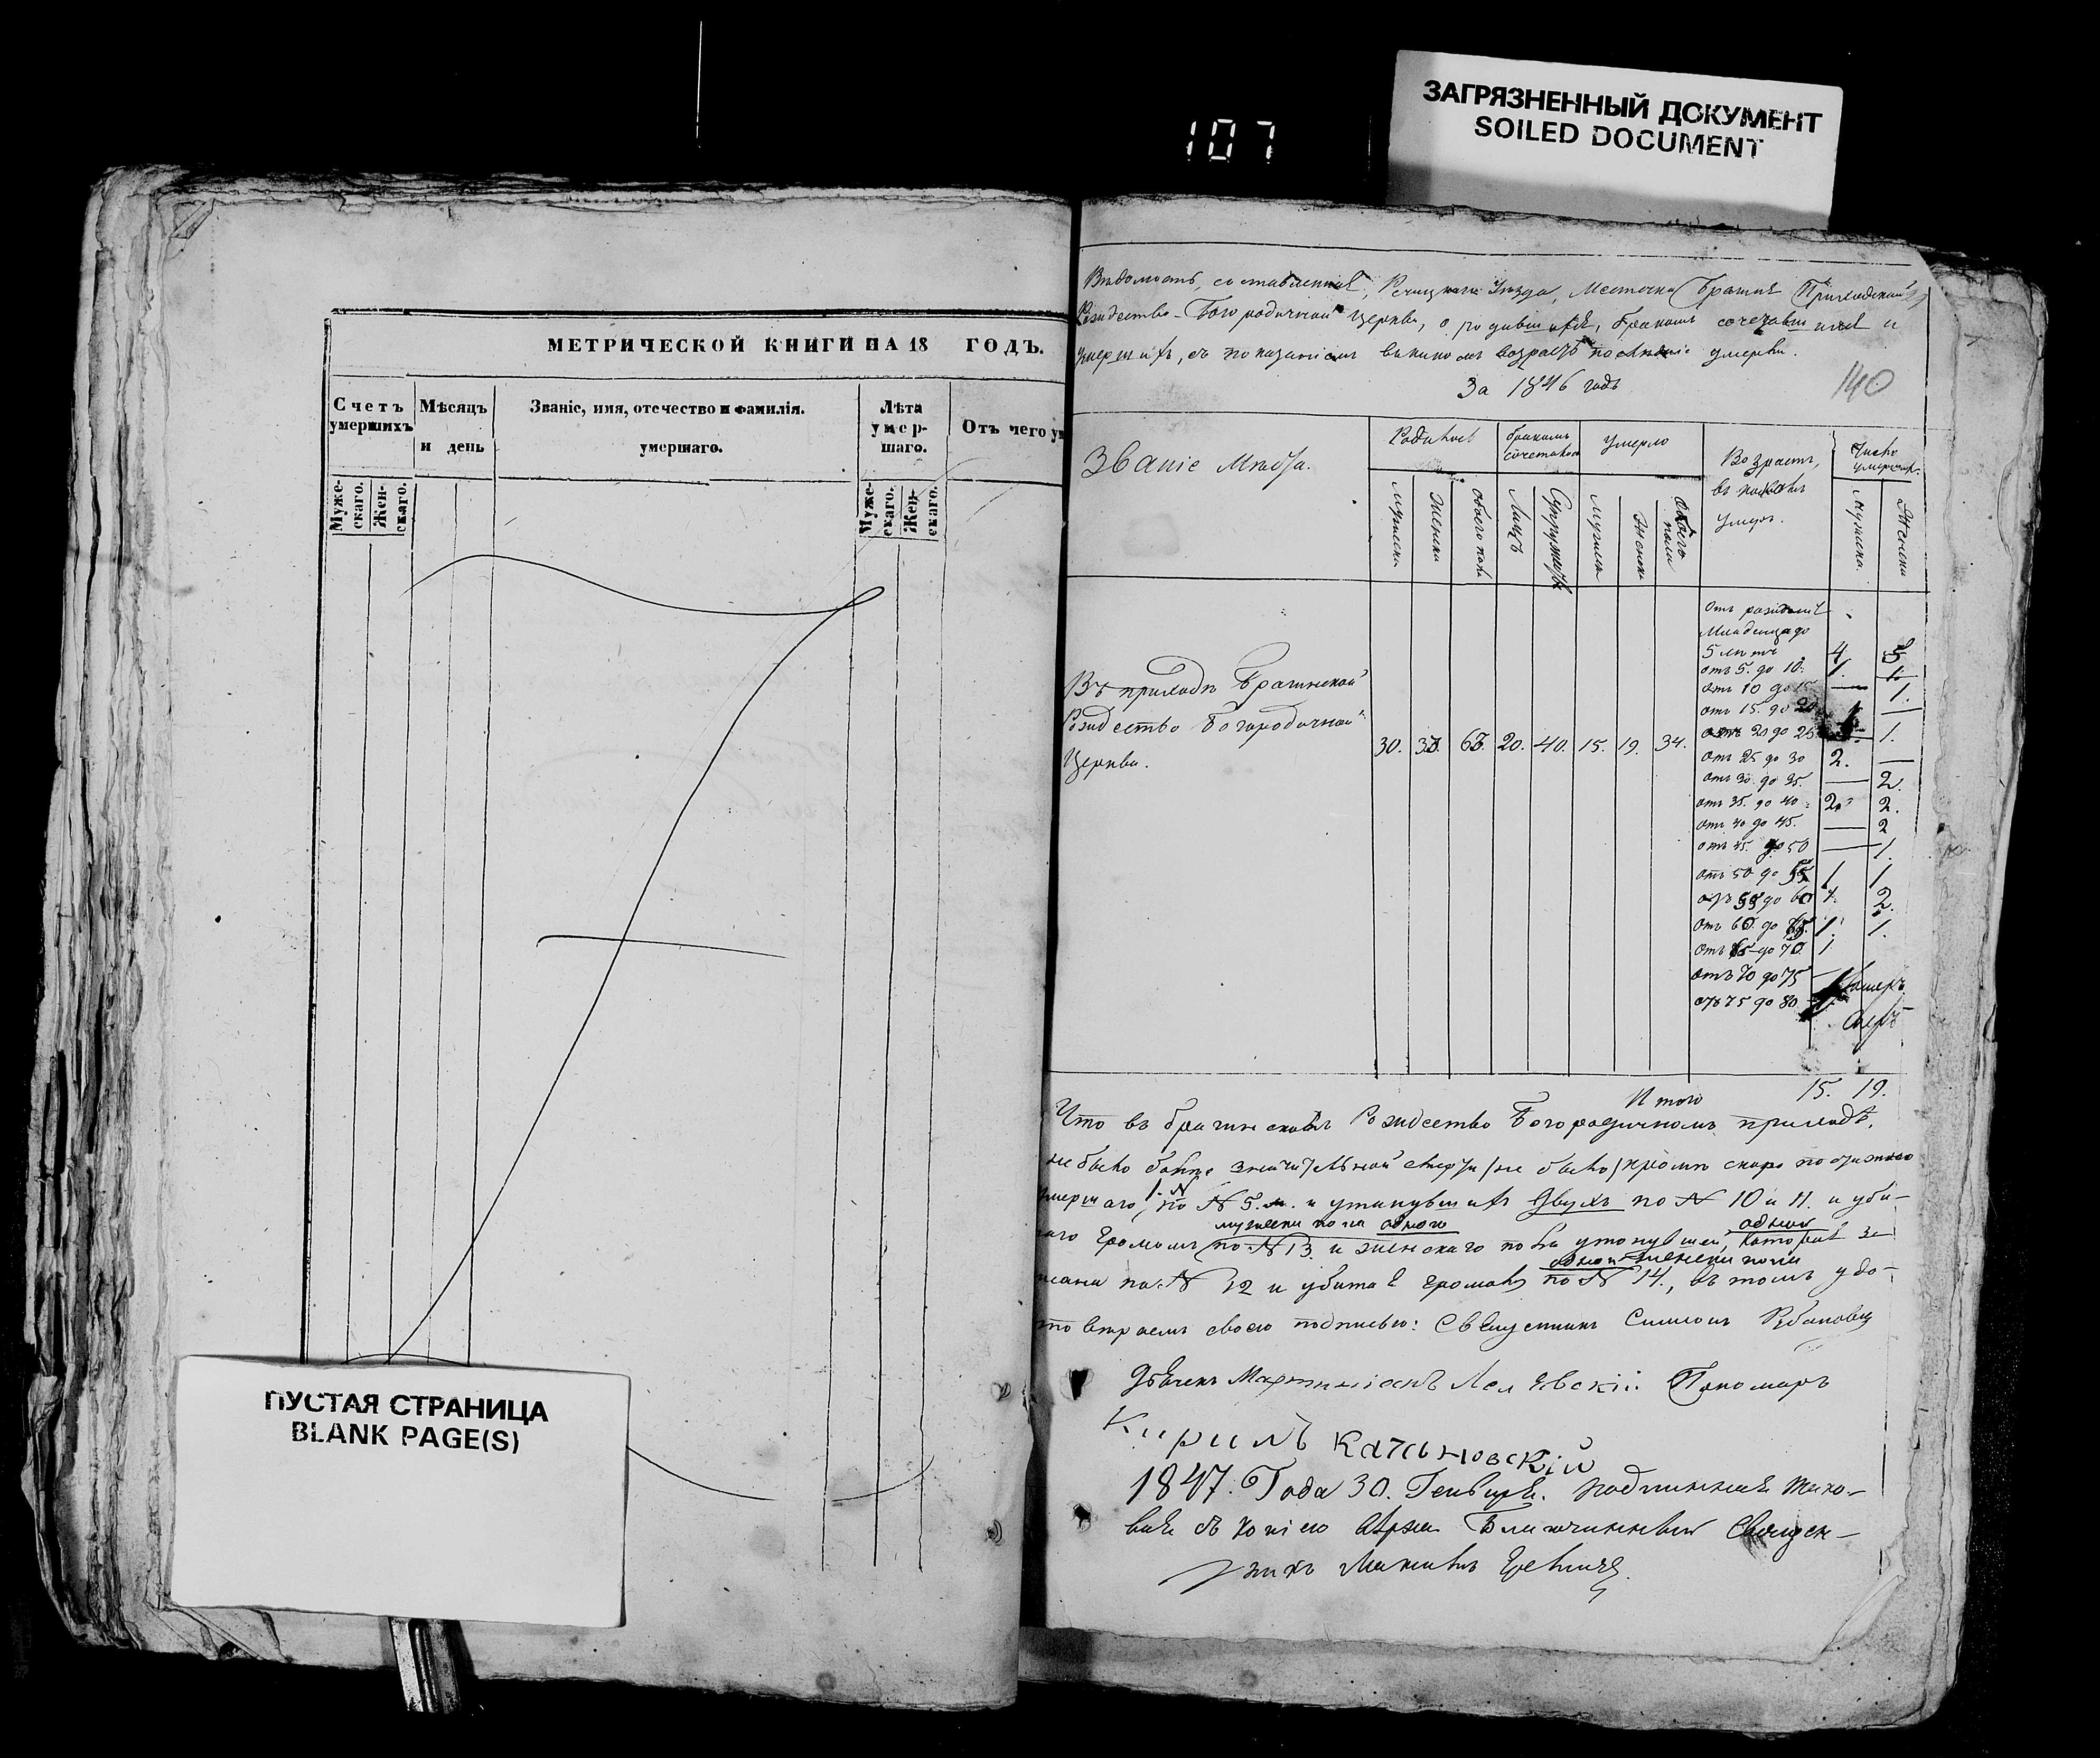 107
ЗАГРЯЗНЕННЫЙ ДОКУМЕНТ
SOILED DOCUMENT
МЕТРИЧЕСКОЙ КНИГИ НА 18 ГОДЪ.
Счетъ умершихъ
Мѣсяцъ и день
Званіе, имя, отечество и фамилія. умершаго.
Лѣта умер-шаго.
Отъ чего
Муже-скаго.
Жен-скаго.
Муже-скаго.
Жен-скаго.
ПУСТАЯ СТРАНИЦА
BLANK PAGE(S)
Вѣдомость, составленная, Речицкаго Уѣзда, Местечка Брагина Приходской
Рождество-Богородичной Церкви, о родившихся, бракомъ сочетавшихся и
умершихъ, съ показаніемъ въ какомъ возрастѣ послѣдніе умерли.
За 1846 годъ
140
Званіе Мѣста.
Родилось
бракомъ сочеталось
Умерло
Возрастъ, въ умер.
Число умершихъ.
мужески
женски
обоего пола
Лицъ
Супружествъ
мужеска
женска
обоего пола
мужеска.
Женска
отъ рожденія
Младенца до
5 лѣтъ 4 5
отъ 5. до 10. 1. 1.
отъ 10 до 15 — 1.
отъ 15. до 20 —
отъ 20 до 25 1.
отъ 25 до 30 2. —
отъ 30. до 35. — 2.
отъ 35. до 40. 2. 2.
отъ 40 до 45. — 2
отъ 45. до 50 — 1.
отъ 50 до 55 1 1
отъ 55 до 60 2.
отъ 60. до 65. 1. 1.
отъ 65 до 70. 1
отъ 70 до 75 —
отъ 75 до 80
Въ приходѣ Брагинской
Рождество Богородичной
Церкви.
30. 33. 63. 20. 40. 15. 19. 34.
Итого 15. 19.
Что въ брагинскомъ Рождество Богородичномъ приходѣ,
не было болѣе значительной смерти /не было/ кромѣ скоро
умершаго, по N 5. и утонувшихъ двухъ по N 10 и 11. и уби-
мужески пола одного одной
громомъ по N 13. и женскаго пола утонувшей, которая за-
одной женски пола
по N 12 и убитая громомъ по N 14., въ томъ удо-
своею подписью: Священникъ Симеонъ
Дьячекъ Мартиніанъ Пономарь
Кирилъ Качановскій
1847. Года 30. Генваря. подлинная тако-
вая съ копіею Благочинный Священ-
никъ